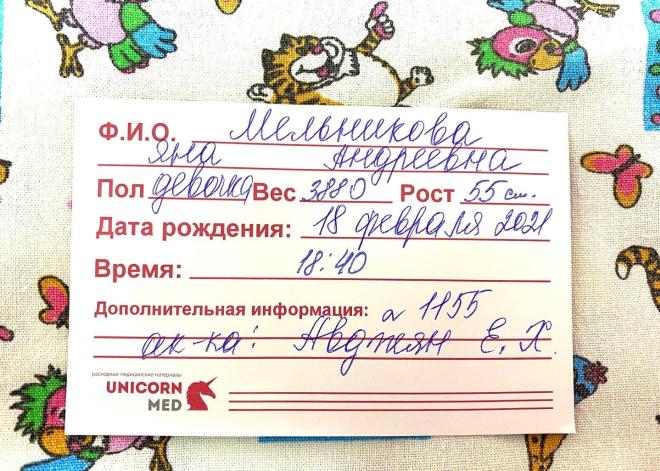 Ф.И.О. Мельникова
Яна Андреевна
Пол девочка Вес 3880 Рост 55 см.
Дата рождения: 18 февраля 2021
Время: 18:40
Дополнительная информация: 1155
ак-ка: Авджян Е. Х.
расходные медицинские материалы
UNICORN
MED